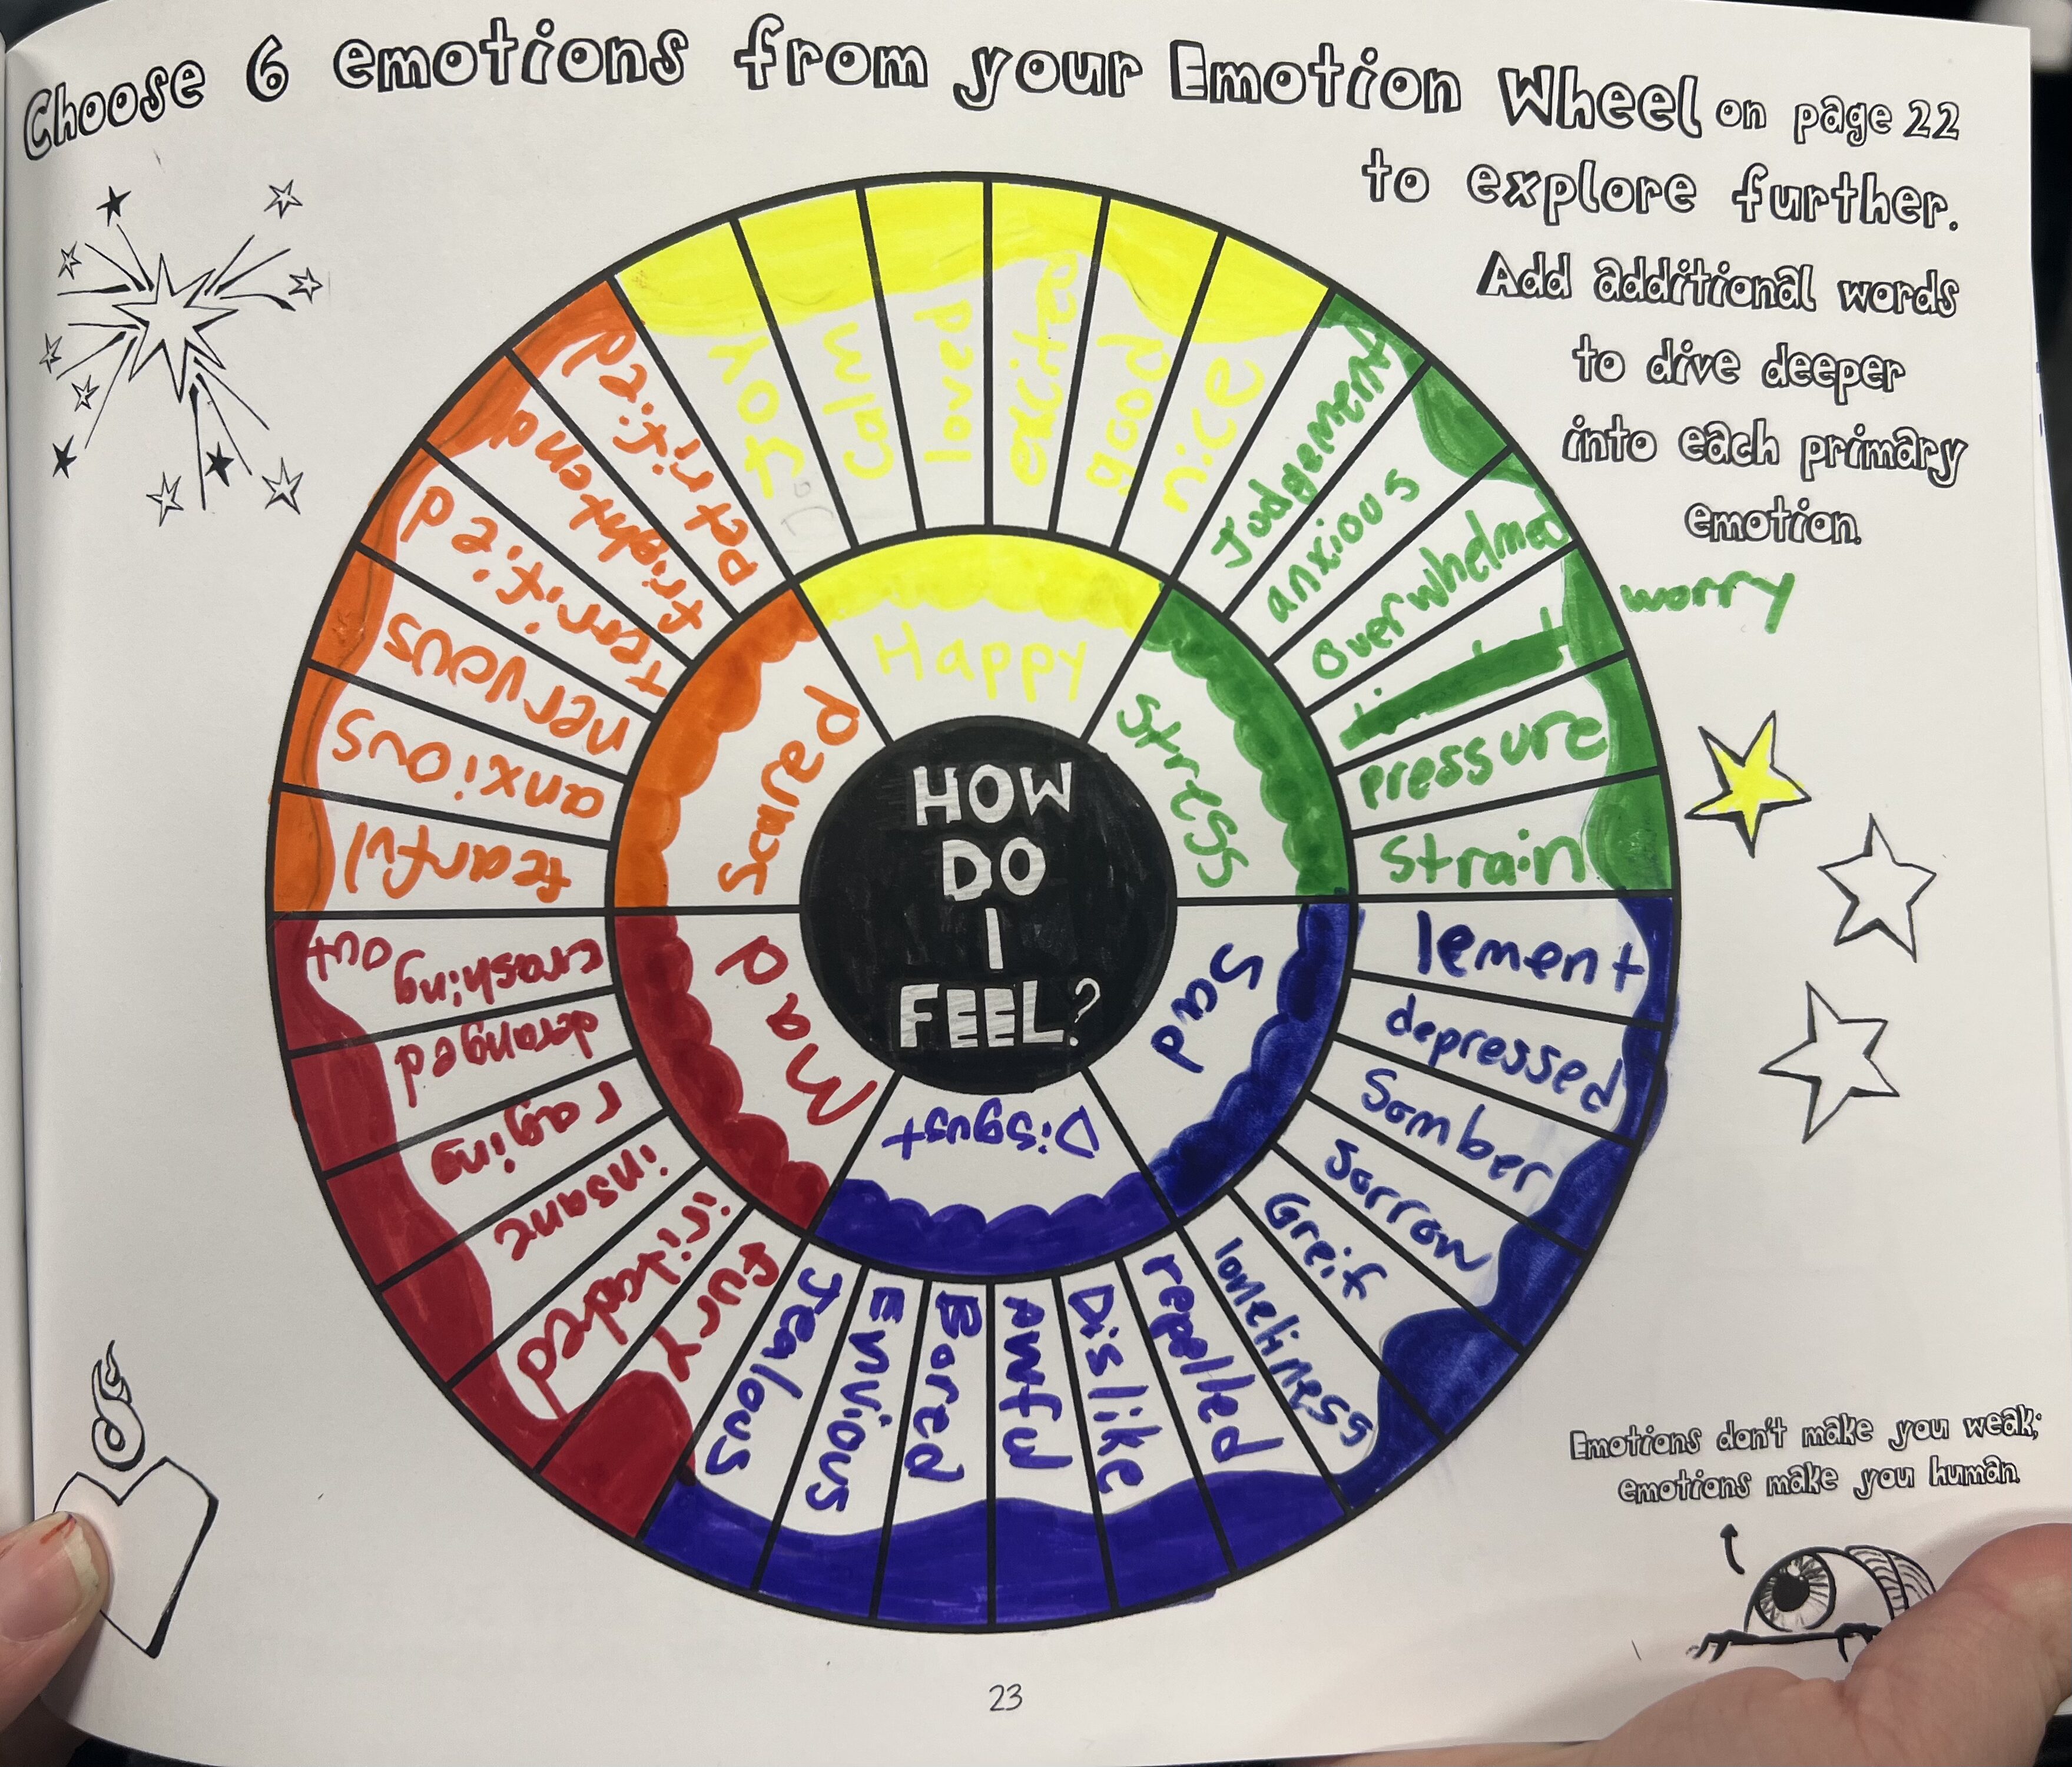 Choose 6 emotions from your Emotion Wheel on page 22
to explore further.
Add additional words
to dive deeper
into each primary
emotion.
HOW
DO
I
FEEL?
Happy
Joy
calm
loved
excited
good
nice
Stress
Judgement
anxious
Overwhelmed
worry
pressure
strain
Sad
lement
depressed
Somber
Sorrow
Greif
loneliness
Disgust
repelled
Dislike
Awful
Bored
Envious
Jealous
Mad
fury
iritaded
insane
raging
deranged
crashing
out
Scared
fearful
anxious
nervous
terrified
frightend
petrified
Emotions don't make you weak;
emotions make you human.
23